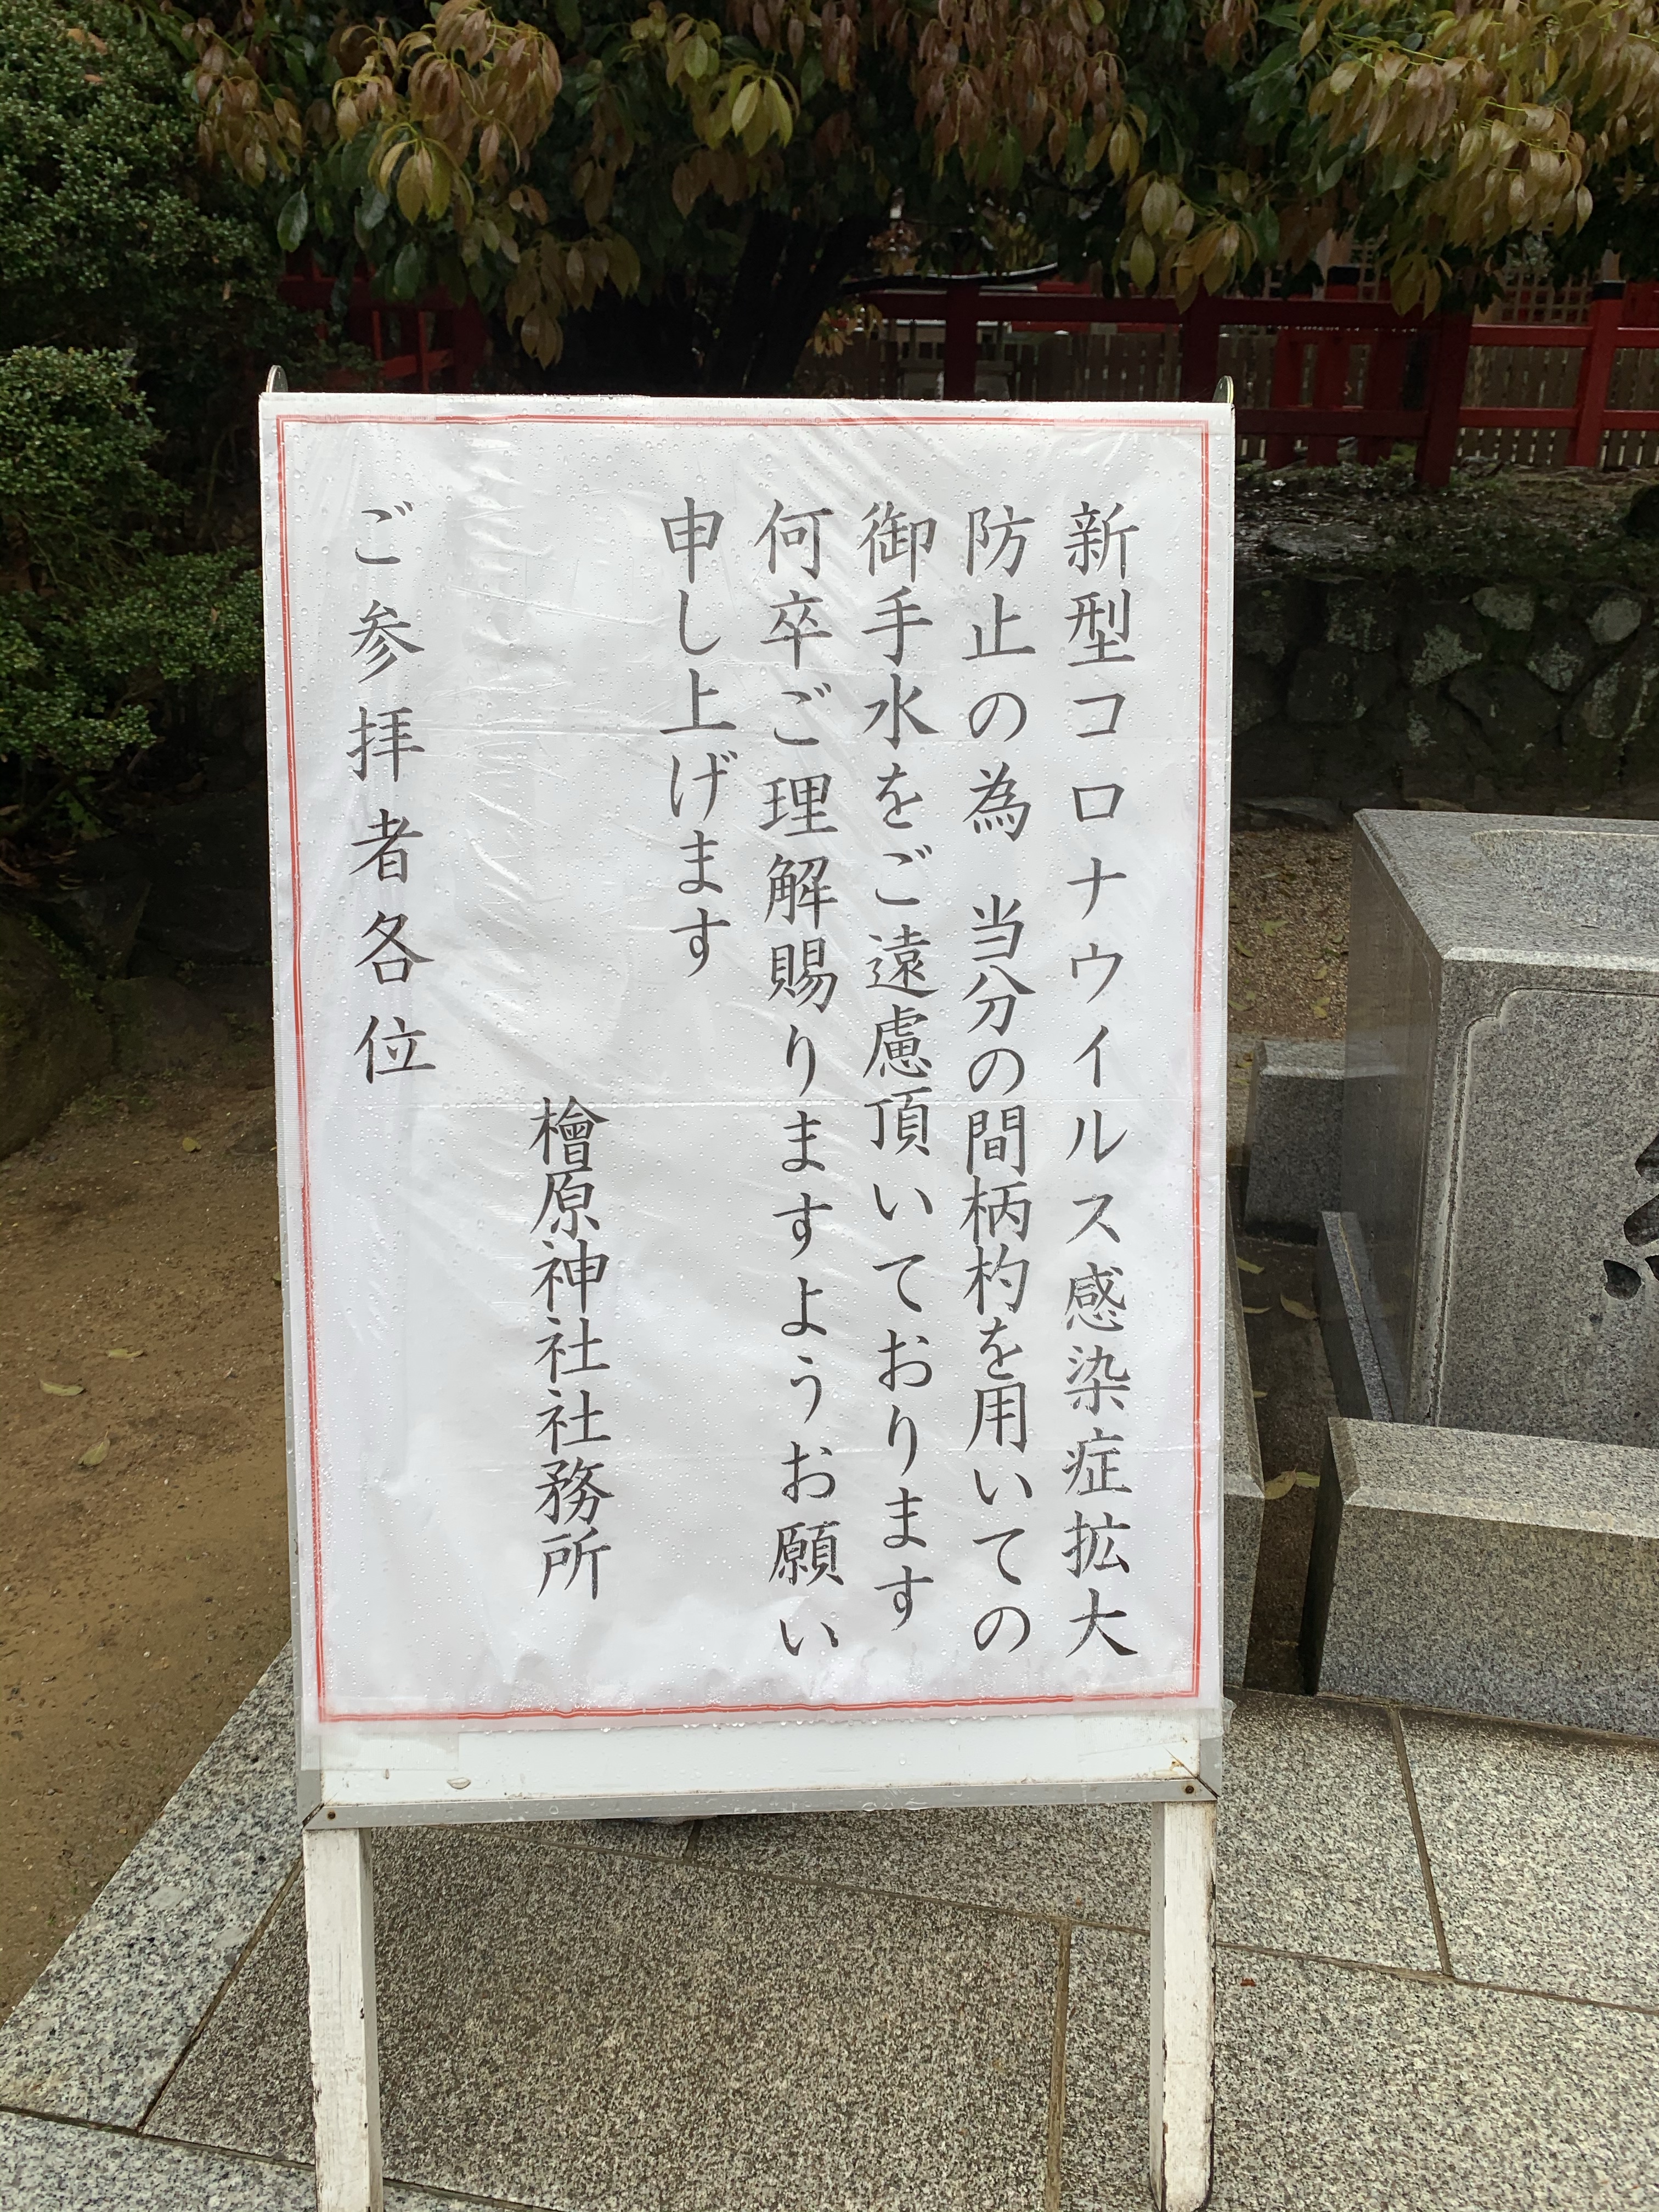 新型コロナウイルス感染症拡大
防止の為 当分の間柄杓を用いての
御手水をご遠慮頂いております
何卒ご理解賜りますようお願い
申し上げます
檜原神社社務所
ご参拝者各位